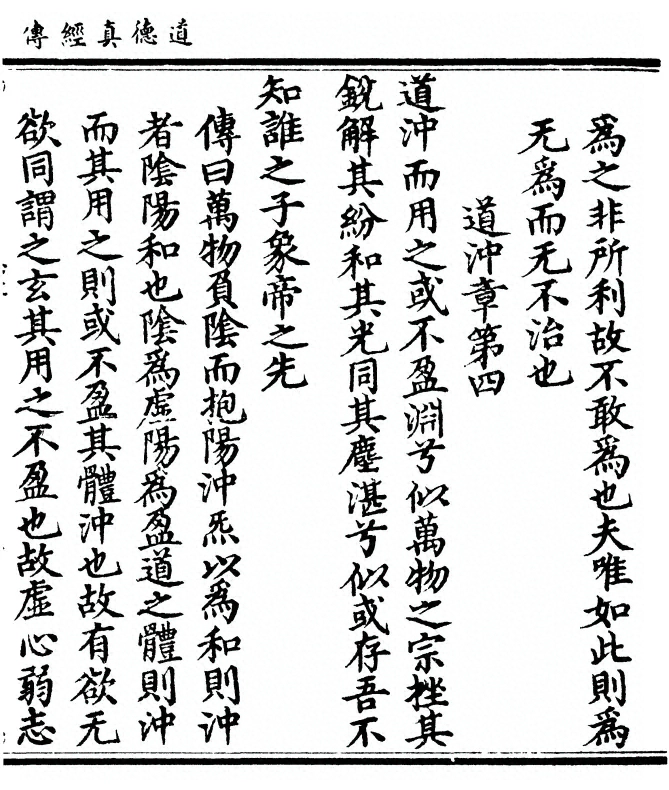 道德真經傳
爲之非所利故不敢爲也夫唯如此則爲
无爲而无不治也
道沖章第四
道沖而用之或不盈淵兮似萬物之宗挫其
銳解其紛和其光同其塵湛兮似或存吾不
知誰之子象帝之先
傳曰萬物負陰而抱陽沖炁以爲和則沖
者陰陽和也陰爲虛陽爲盈道之體則沖
而其用之則或不盈其體沖也故有欲无
欲同謂之玄其用之不盈也故虛心弱志